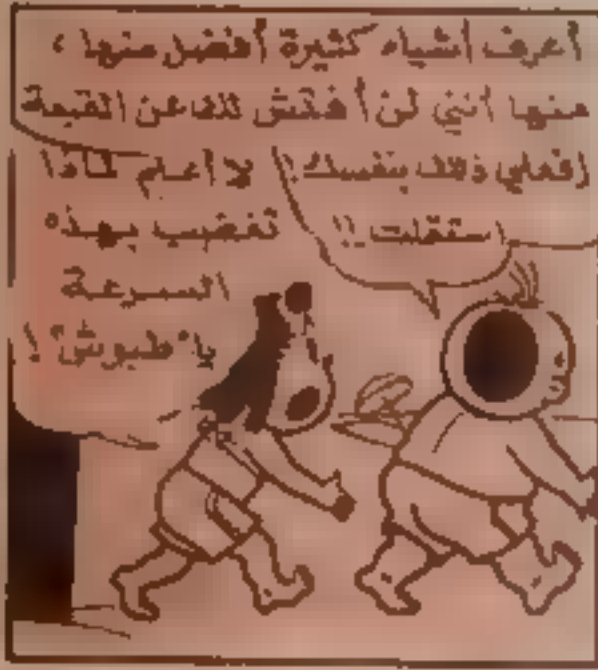 أعرف أشياء كثيرة أفضل منها ،
منها أنني لن أفتش لك عن القبعة
إفعلي ذلك بنفسك !
إستقلت !!
لا أعلم لماذا
تغضب بهذه
السرعة
يا "طبوش" !